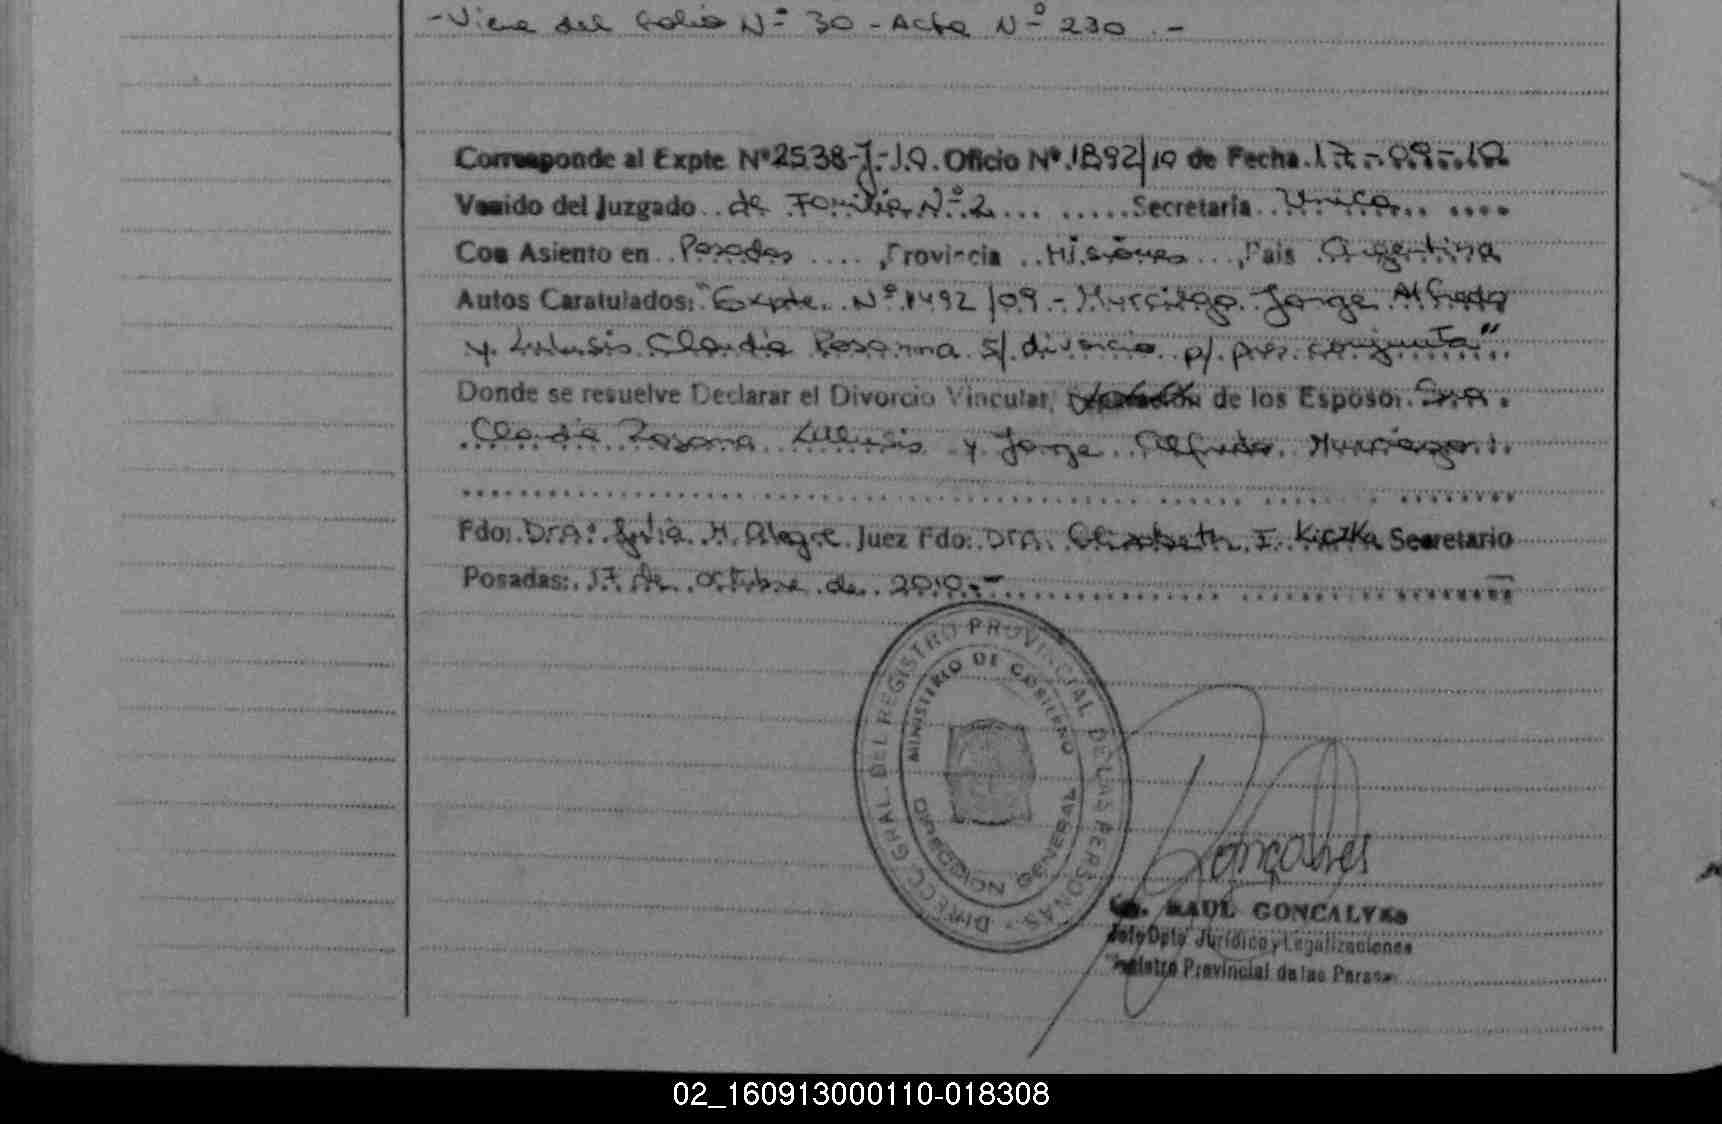 -Viene del folio Nº 30 - Acta Nº 230 .-
Corresponde al Expte Nº 2538-J-10. Oficio Nº 1892/10 de Fecha 17-09-10
Venido del Juzgado de Familia Nº 2 Secretaria Unica
Con Asiento en Posadas, Provincia Misiones, Pais Argentina
Autos Caratulados: "Expte. Nº 1492/09.- Murciego Jorge Alfredo
y Claudia Rosanna s/ divorcio p/ pres. conjunta"
Donde se resuelve Declarar el Divorcio Vincular, de los Esposos Sra.
Claudia Rosana y Jorge Alfredo Murciego.
Fdo: Dra: Julia M. Alegre Juez Fdo: Dra. Elizabeth I. Kiczka Secretario
Posadas: 17 de octubre de 2010.-
DIRECC. GRAL. DEL REGISTRO PROVINCIAL DE LAS PERSONAS
MINISTERIO DE GOBIERNO
DIRECCION GENERAL
Goncalves
RAUL GONCALVES
Jefe Dpto Jurídico y Legalizaciones
Registro Provincial de las Personas
02_160913000110-018308